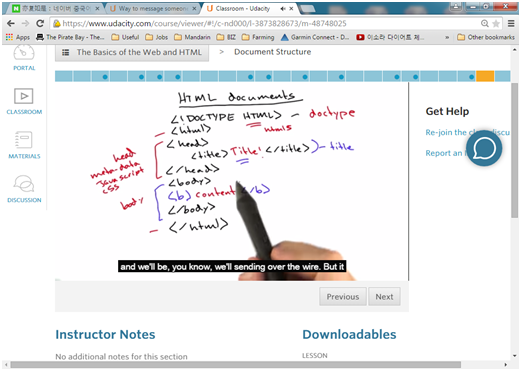 Way to message someone
Classroom - Udacity
https://www.udacity.com/course/viewer#!/c-nd000/l-3873828673/m-48748025
Apps
The Pirate Bay - The
Downloads
Jobs
Mandarin
BIZ
Farming
Garmin Connect - D
이소라 다이어트 체조
Other bookmarks
The Basics of the Web and HTML
Document Structure
PORTAL
CLASSROOM
MATERIALS
DISCUSSION
HTML documents
<!DOCTYPE HTML> - doctype
<html> html5
<head>
<title> Title! </title> - title
</head>
<body>
<b> content </b>
</body>
</html>
head
meta-data
javascript
css
body
and we'll be, you know, we'll sending over the wire. But it
Get Help
Re-join the class discu
Report an
Previous
Next
Instructor Notes
No additional notes for this section
Downloadables
LESSON